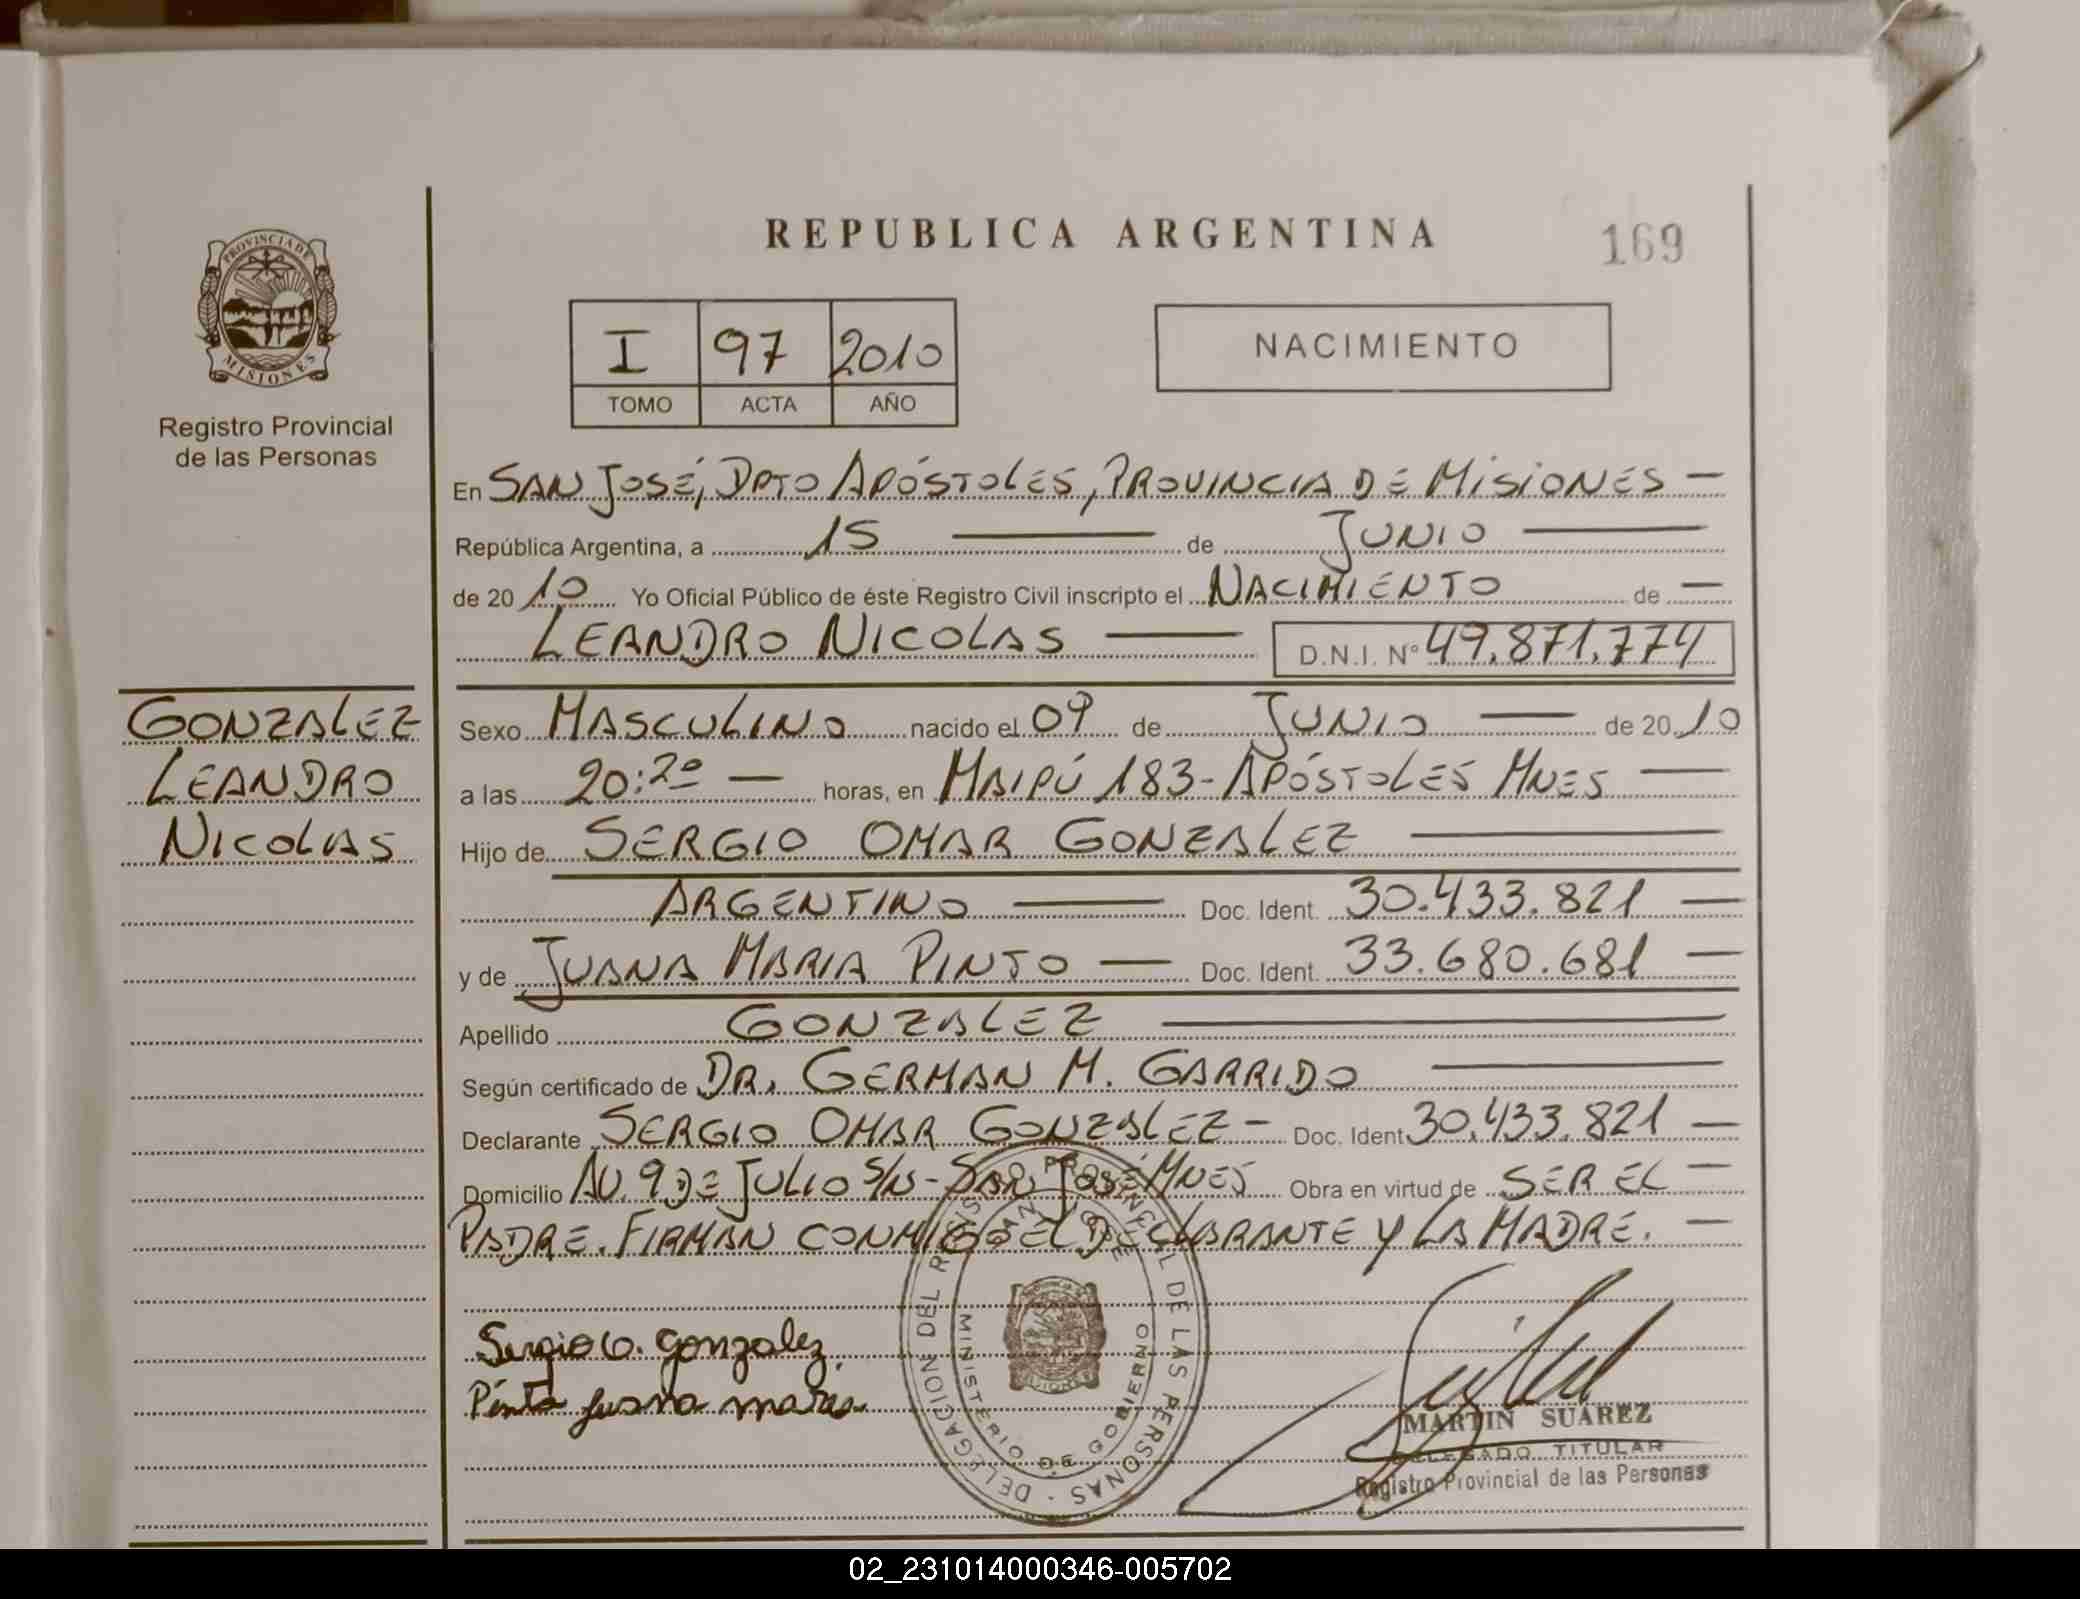 REPUBLICA ARGENTINA
169
PROVINCIA DE
MISIONES
Registro Provincial
de las Personas
I 97 2010
TOMO ACTA AÑO
NACIMIENTO
En SAN JOSÉ, DPTO APÓSTOLES, PROVINCIA DE MISIONES —
República Argentina, a 15 — de JUNIO —
de 2010 Yo Oficial Público de éste Registro Civil inscripto el NACIMIENTO de —
LEANDRO NICOLAS — D.N.I. Nº 49.871.774
GONZALEZ
LEANDRO
NICOLAS
Sexo MASCULINO nacido el 09 de JUNIO — de 2010
a las 20:20 — horas, en MAIPÚ 183 - APÓSTOLES MNES —
Hijo de SERGIO OMAR GONZALEZ —
ARGENTINO — Doc. Ident. 30.433.821 —
y de JUANA MARIA PINTO — Doc. Ident. 33.680.681 —
Apellido GONZALEZ —
Según certificado de DR. GERMAN M. GARRIDO —
Declarante SERGIO OMAR GONZALEZ - Doc. Ident 30.433.821 —
Domicilio AV. 9 DE JULIO S/N - SAN JOSÉ MNES Obra en virtud de SER EL —
PADRE. FIRMAN CONMIGO EL DECLARANTE Y LA MADRE. —
Sergio O. Gonzalez.
Pinto Juana maria
DELEGACION DEL REGISTRO PROVINCIAL DE LAS PERSONAS
MINISTERIO DE GOBIERNO
MARTIN SUAREZ
DELEGADO TITULAR
Registro Provincial de las Personas
02_231014000346-005702